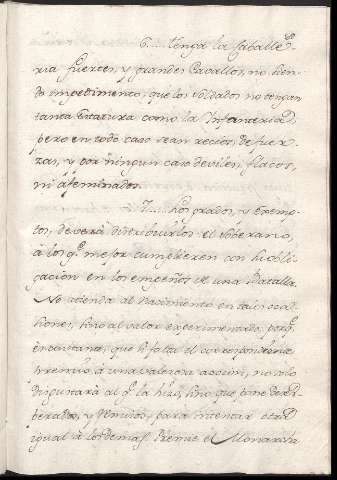 6.... tenga la Caballe-
ria fuertes, y grandes Cavallos, no sien-
do impedimento, que los Soldados no tengan
tanta Estatura como la Infanteria,
pero en todo caso sean recios, de fuer-
zas, y por ningun caso deviles, flacos,
ni afeminados.
7.... Los grados, y exemp-
tos, deverá distribuirlos el Soberano,
à los q.e mejor cumplieren con su obli-
gacion en los empeños de una Batalla.
No atienda al Nacimiento en tais ocas
siones, sino al valor experimentado, porq.
en quitante, que si falta el correspondiente
premio, à una valerosa accion, no solo
disgustará al q.e la hizo, sino que pone
y remisos, para intentar otra
igual à los demas. Premie el Monarca